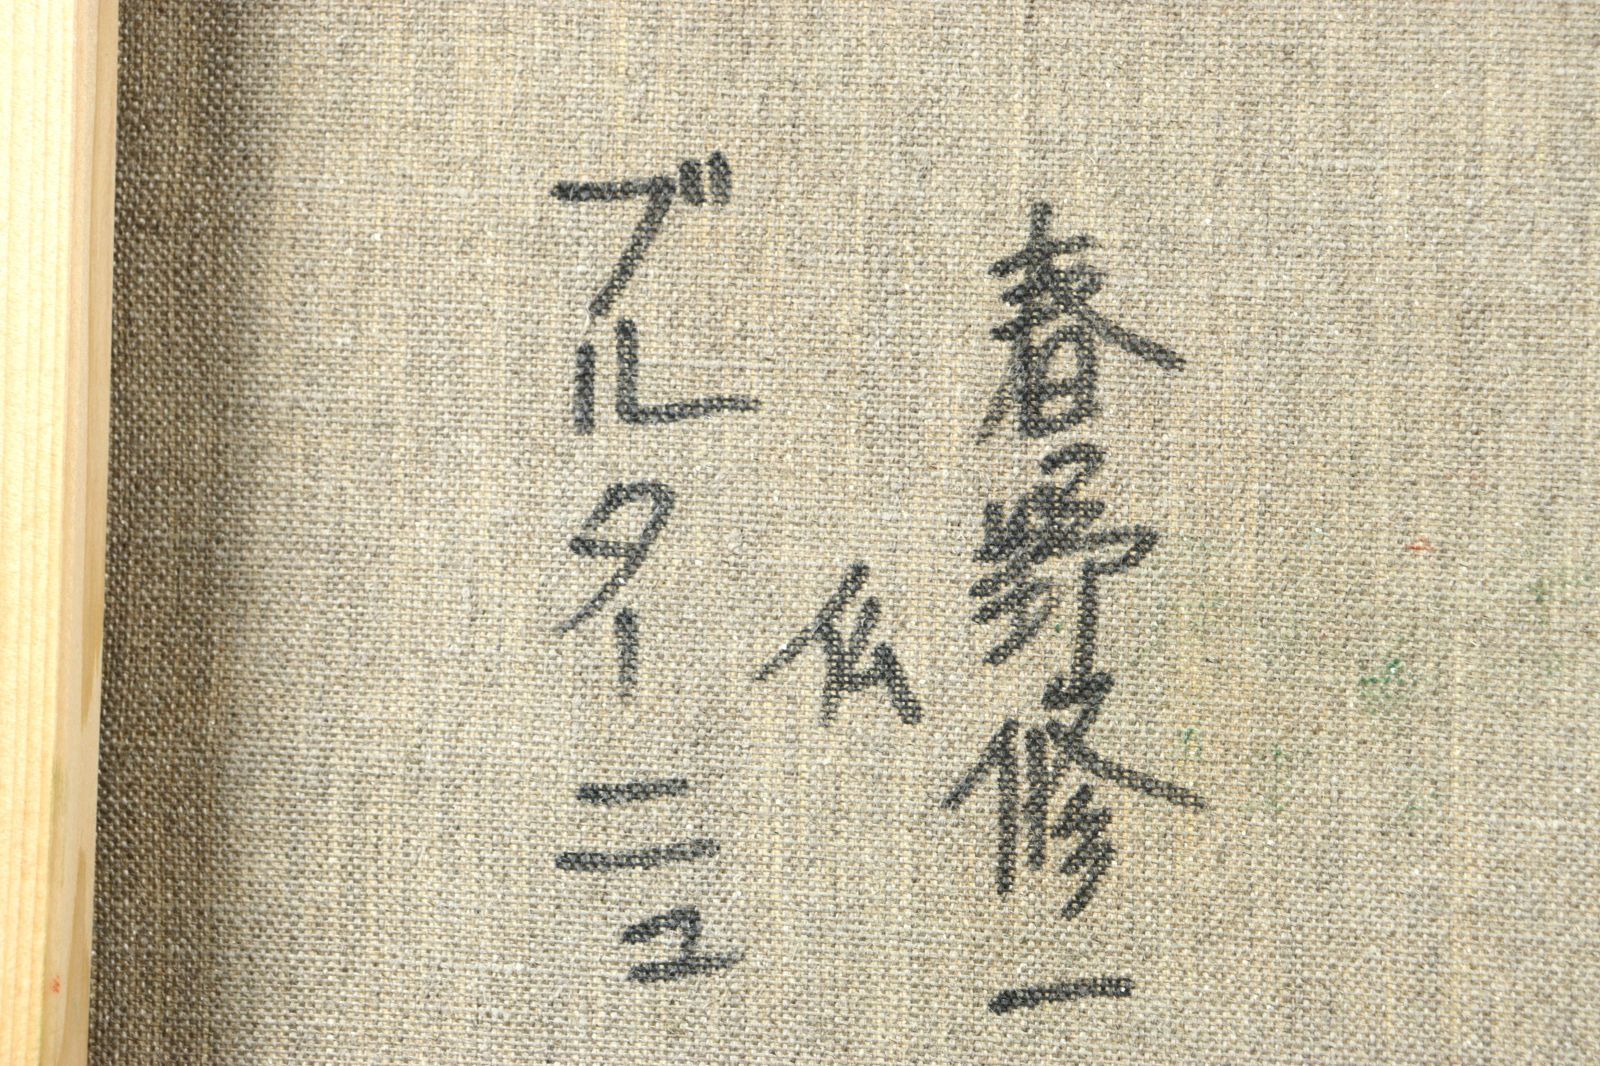 春野修一
仏
ブルターニュ